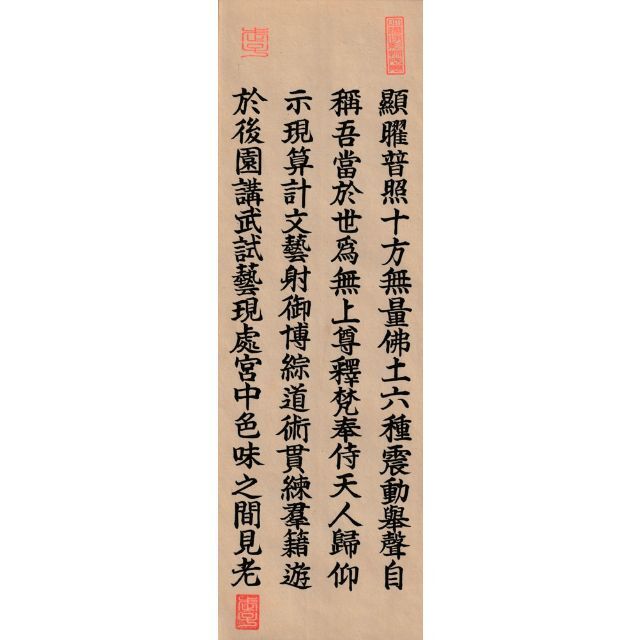 顯曜普照十方無量佛土六種震動舉聲自
稱吾當於世爲無上尊釋梵奉侍天人歸仰
示現算計文藝射御博綜道術貫練羣籍遊
於後園講武試藝現處宮中色味之間見老